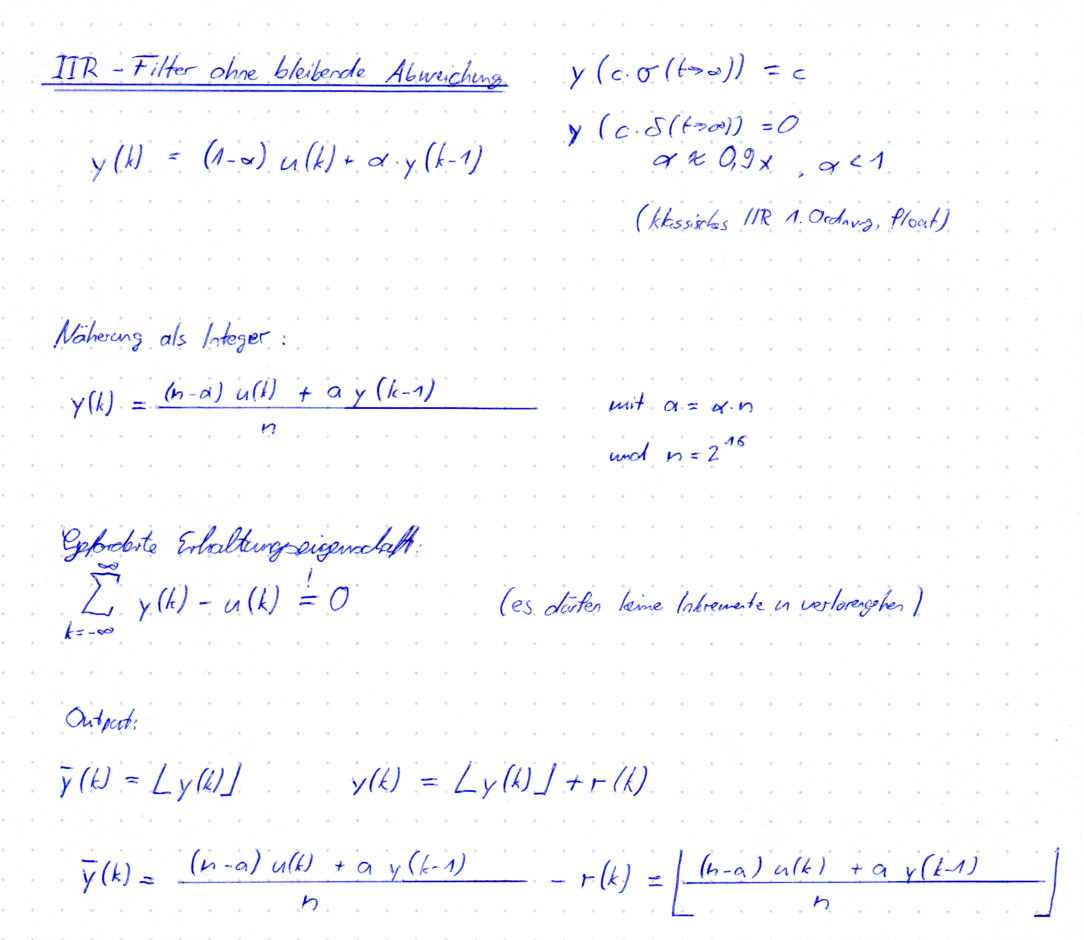 IIR - Filter ohne bleibende Abweichung
y (c·σ(t→∞)) = c
y (c·δ(t→∞)) = 0
y(k) = (1-α) u(k) + α·y(k-1)
α ≈ 0,9x , α < 1
(klassisches IIR 1. Ordnung, float)
Näherung als Integer:
y(k) = ((n-α) u(k) + a y(k-1)) / n
mit a = α·n
und n = 2^16
Geforderte Erhaltungseigenschaft:
∑_{k=-∞}^{∞} y(k) - u(k) =! 0 (es dürfen keine Inkremente in u verlorengehen)
Output:
ȳ(k) = ⌊y(k)⌋ y(k) = ⌊y(k)⌋ + r(k)
ȳ(k) = ((n-a) u(k) + a y(k-1)) / n - r(k) = ⌊((n-a) u(k) + a y(k-1)) / n⌋